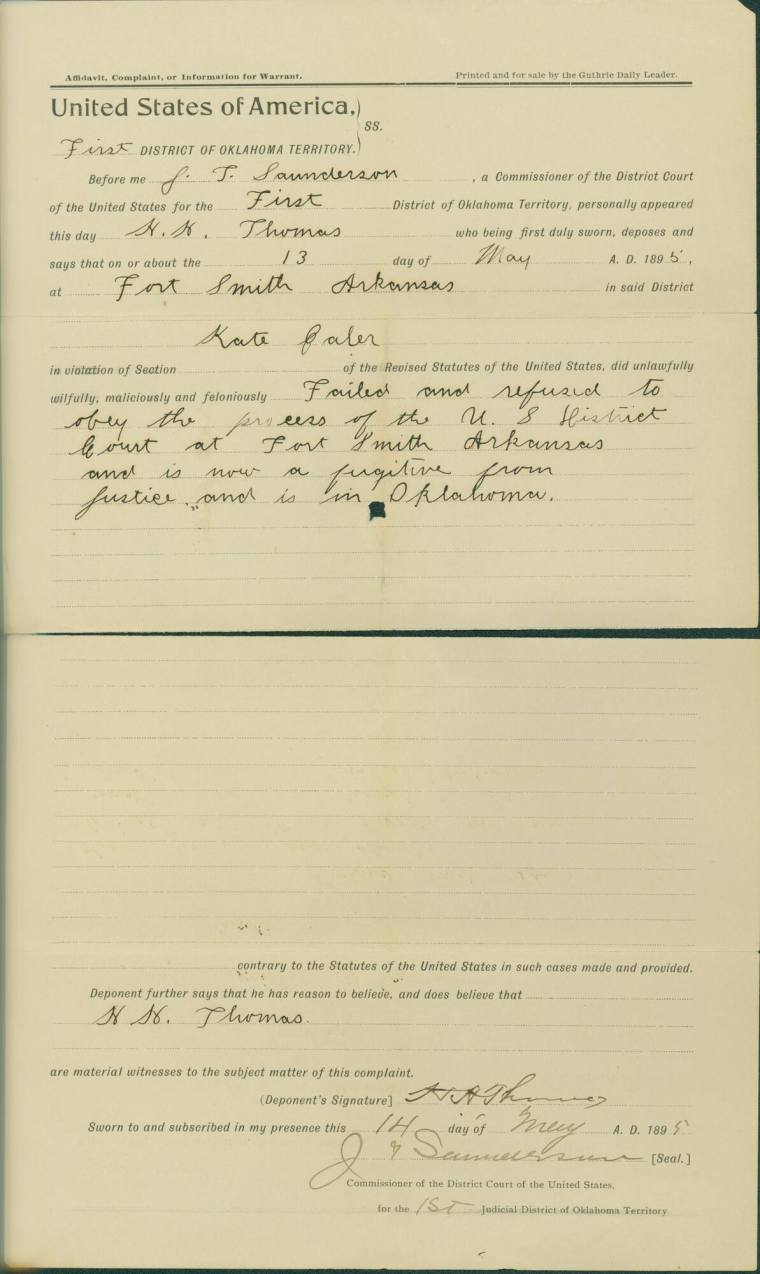 Affidavit, Complaint, or Information for Warrant. Printed and for sale by the Guthrie Daily Leader.
United States of America,
SS.
First DISTRICT OF OKLAHOMA TERRITORY.
Before me J. T. Saunderson, a Commissioner of the District Court
of the United States for the First District of Oklahoma Territory, personally appeared
this day H. H. Thomas who being first duly sworn, deposes and
says that on or about the 13 day of May A. D. 1895,
at Fort Smith Arkansas in said District
Kate Caler
in violation of Section of the Revised Statutes of the United States, did unlawfully
wilfully, maliciously and feloniously Failed and refused to
obey the process of the U. S District
Court at Fort Smith Arkansas
and is now a fugitive from
Justice, and is in Oklahoma.
contrary to the Statutes of the United States in such cases made and provided.
Deponent further says that he has reason to believe, and does believe that
H H. Thomas.
are material witnesses to the subject matter of this complaint.
(Deponent's Signature] H A Thomas
Sworn to and subscribed in my presence this 14 day of May A. D. 1895
J T Saunderson [Seal.]
Commissioner of the District Court of the United States,
for the 1st Judicial District of Oklahoma Territory